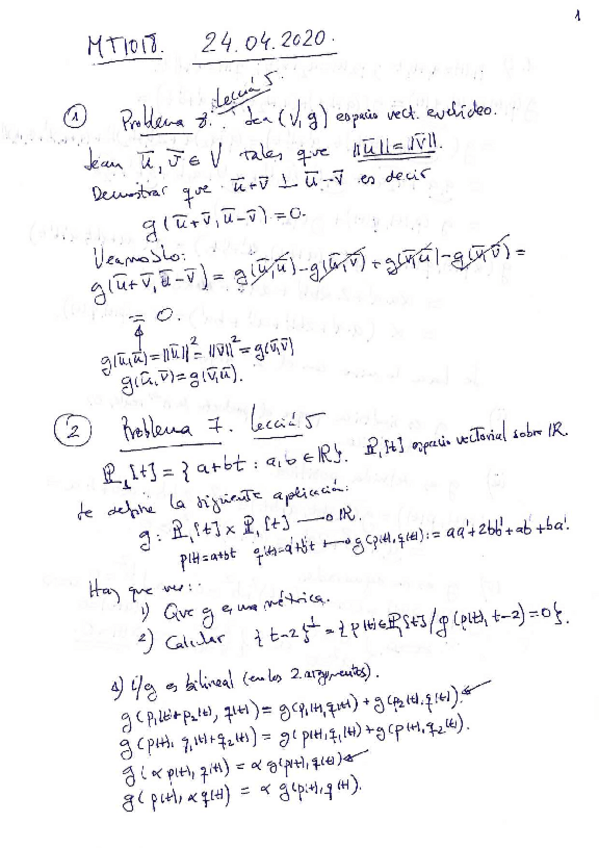 1
MT1018. 24.04.2020.
① Problema 8. Lección 5: Sea (V,g) espacio vect. euclídeo.
Sean ū, v̄ ∈ V tales que ||ū||=||v̄||.
Demostrar que ū+v̄ ⊥ ū-v̄ es decir
g(ū+v̄, ū-v̄)=0.
Veámoslo:
g(ū+v̄, ū-v̄) = g(ū,ū) - g(ū,v̄) + g(v̄,ū) - g(v̄,v̄) =
= 0.
g(ū,ū)=||ū||²=||v̄||²=g(v̄,v̄)
g(ū,v̄)=g(v̄,ū).
② Problema 7. Lección 5
ℙ₁[t] = { a+bt : a,b ∈ ℝ}. ℙ₁[t] espacio vectorial sobre ℝ.
Se define la siguiente aplicación:
g: ℙ₁[t] × ℙ₁[t] → ℝ.
p(t)=a+bt q(t)=a'+b't → g(p(t),q(t)):= aa'+2bb'+ab'+ba'.
Hay que ver:
1) Que g es una métrica.
2) Calcular {t-2}^⊥ = {p(t)∈ℙ₁[t] / g(p(t), t-2)=0}.
1) i/ g es bilineal (en los 2 argumentos).
g(p₁(t)+p₂(t), q(t)) = g(p₁(t),q(t)) + g(p₂(t),q(t)).
g(p(t), q₁(t)+q₂(t)) = g(p(t),q₁(t)) + g(p(t),q₂(t)).
g(αp(t), q(t)) = α g(p(t), q(t))
g(p(t), αq(t)) = α g(p(t), q(t)).